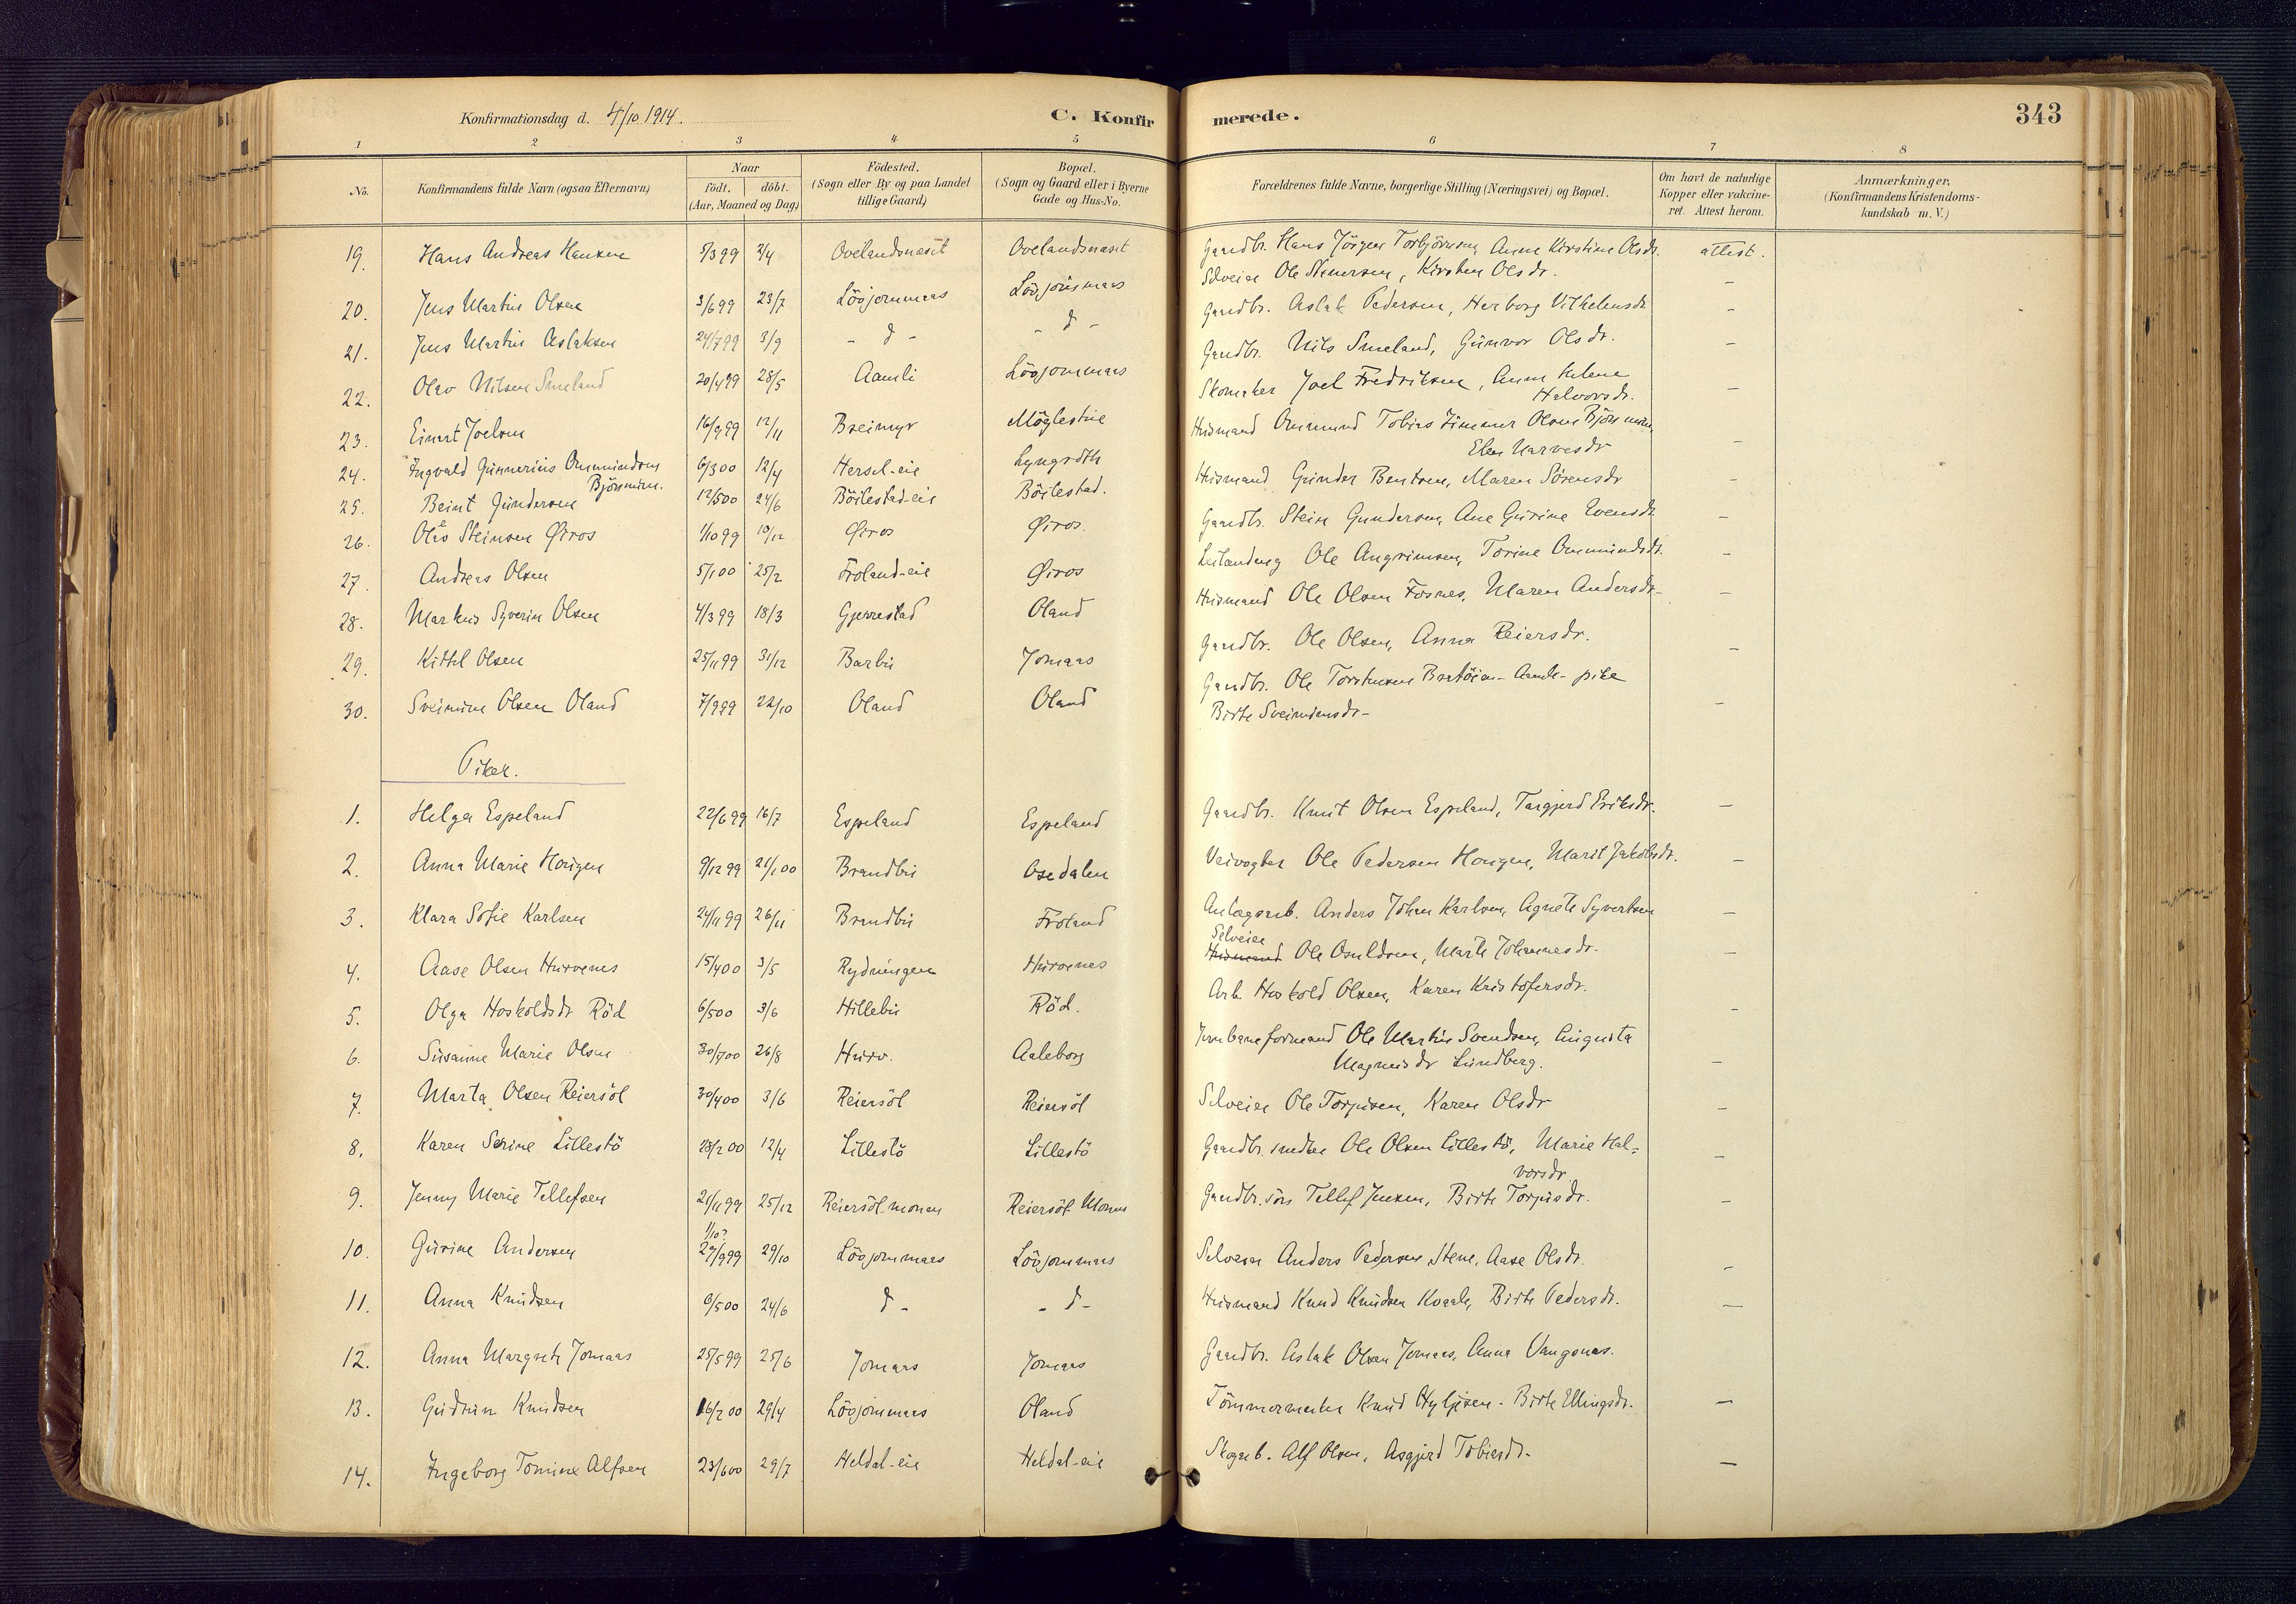 Konfirmationsdag d. 4/10 1914.
C. Konfirmerede.
343
1 2 3 4 5 6 7 8
No.
Konfirmandens fulde Navn (ogsaa Efternavn)
Naar
födt. döbt.
(Aar, Maaned og Dag)
Födested.
(Sogn eller By og paa Landet
tillige Gaard)
Bopæl.
(Sogn og Gaard eller i Byerne
Gade og Hus-No.
Forældrenes fulde Navne, borgerlige Stilling (Næringsvei) og Bopæl.
Om havt de naturlige
Kopper eller vakcine-
ret. Attest herom.
Anmærkninger.
(Konfirmandens Kristendoms-
kundskab m. V.)
19. Hans Andreas Hansen 5/3 99 3/4 Ovelandsnæset Ovelandsnæset Gaardbr. Hans Jörgen Torbjörnsen, Anne Kirstine Olsdr. attest.
20. Jens Martin Olsen 3/6 99 23/7 Lövjommaas Lövjommaas Selveier Ole Stenersen, Kirsten Olsdr. -
21. Jens Martin Aslaksen 24/7 99 3/9 - d - - d - Gaardbr. Aslak Pedersen, Herborg Vilhelmsdr. -
22. Olav Nilsen Smeland 20/4 99 28/5 Aamli Lövjommaas Gaardbr. Nils Smeland, Gunvor Olsdr. -
23. Einert Joelsen 16/9 99 12/11 Breimyr Möglestue Skomaker Joel Fredriksen, Anne Helene
Halvorsdr. -
24. Ingvald Gunnerius Ommundsen
Björnmün. 6/3 00 12/4 Hersel-eie Lyngroth Husmand Ommund Tobias Olsen
Elen -
25. Beint Gundersen 12/5 00 24/6 Böilestad-eie Böilestad. Husmand Gunder Bentsen, Maren Sörensdr -
26. Olav Steinsen Øiros 1/10 99 10/12 Øiros Øiros. Gaardbr. Stein Gundersen, Ane Gurine Evensdr. -
27. Andreas Olsen 5/1 00 25/2 Froland-eie Øiros Ole Angrimsen, Torine Ommundsdr. -
28. Markus Syverin Olsen 4/3 99 18/3 Gjerrestad Oland Husmand Ole Olsen Fosnes, Maren Andersdr. -
29. Kittel Olsen 25/11 99 31/12 Barbu Jomaas Gaardbr. Ole Olsen, Anna Reiersdr. -
30. Sveinung Olsen Oland 7/9 99 22/10 Oland Oland Gaardbr. Ole Torstensen pike
Birte -
Piker.
1. Helga Espeland 22/6 99 16/7 Espeland Espeland Gaardbr. Knut Olsen Espeland, Targjerd Eriksdr. -
2. Anna Marie Hougen 9/12 99 21/1 00 Brandbu Osedalen Veivogter Ole Pedersen Hougen, Marit Jakobsdr. -
3. Klara Sofie Karlsen 24/11 99 26/11 Brandbu Froland Anlægsarb. Anders Johan Karlsen, Agnete Syvertsen -
4. Aase Olsen Hurvenes 15/4 00 3/5 Rydningen Hurvenes Selveier
Husmand Ole Osuldsen, Marte Johannesdr. -
5. Olga Hoskoldsdr Röd 6/5 00 3/6 Hillebu Röd. Arb. Hoskold Olsen, Karen Kristofersdr. -
6. Susanne Marie Olsen 30/7 00 26/8 Hurv. Aaleborg Jernbaneformand Ole Martin Svendsen, Augusta
Magnusdr Lundberg. -
7. Marta Olsen Reiersöl 30/4 00 3/6 Reiersöl Reiersöl Selveier Ole Torjusen, Karen Olsdr -
8. Karen Serine Lillestö 28/2 00 12/4 Lillestö Lillestö Gaardbr. smed Ole Olsen Lillestö, Marie Hal-
vorsdr -
9. Jenny Marie Tellefsen 21/11 99 25/12 Reiersöl-monen Reiersöl-Monen Gaardbr. sön Tellef Jensen, Birte Torjusdr. -
10. Gurine Andersen 1/10?
29/9 99 29/10 Lövjommaas Lövjommaas Selveier Anders Pedersen Stene, Aase Olsdr. -
11. Anna Knudsen 6/5 00 24/6 d - - d - Husmand Knud Knudsen Kvaale, Birte Pedersdr. -
12. Anna Margrete Jomaas 25/5 99 25/6 Jomaas Jomaas Gaardbr. Aslak Olsen Jomaas, Anna Vangsnes.
13. Gudrun Knudsen 16/2 00 29/4 Lövjommaas Oland Tömmermann Knud - Birte Ellingsdr. -
14. Ingeborg Tomine Alfsen 23/6 00 29/7 Heldal-eie Heldal-eie Skogarb. Alf Olsen, Asgjerd Tobiasdr. -